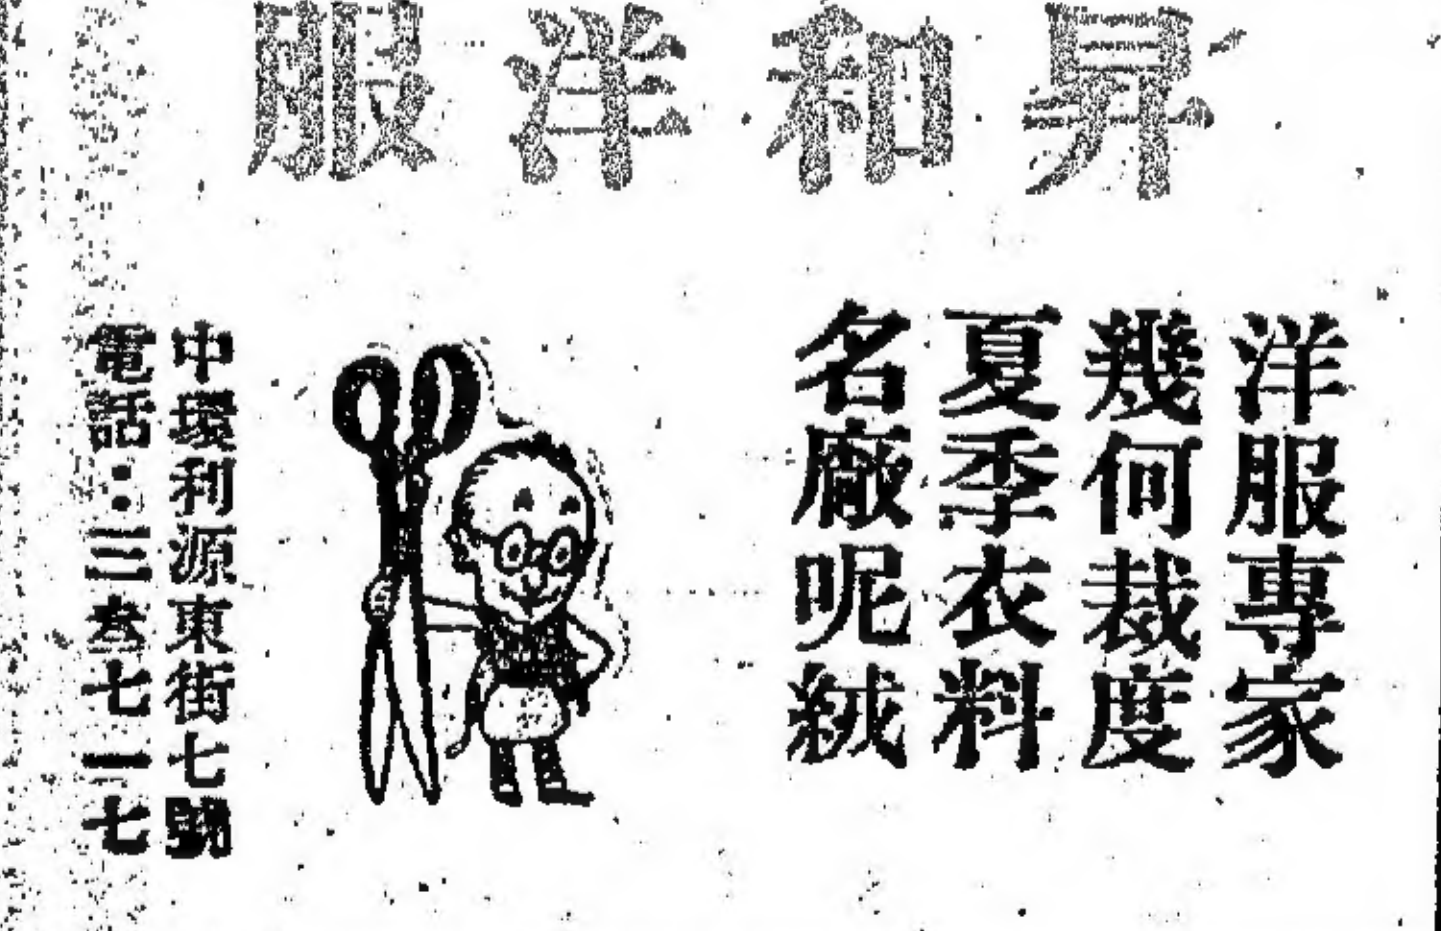 昇和洋服
洋服專家
幾何裁度
夏季衣料
名廠呢絨
中環利源東街七號
電話：三叁七一七